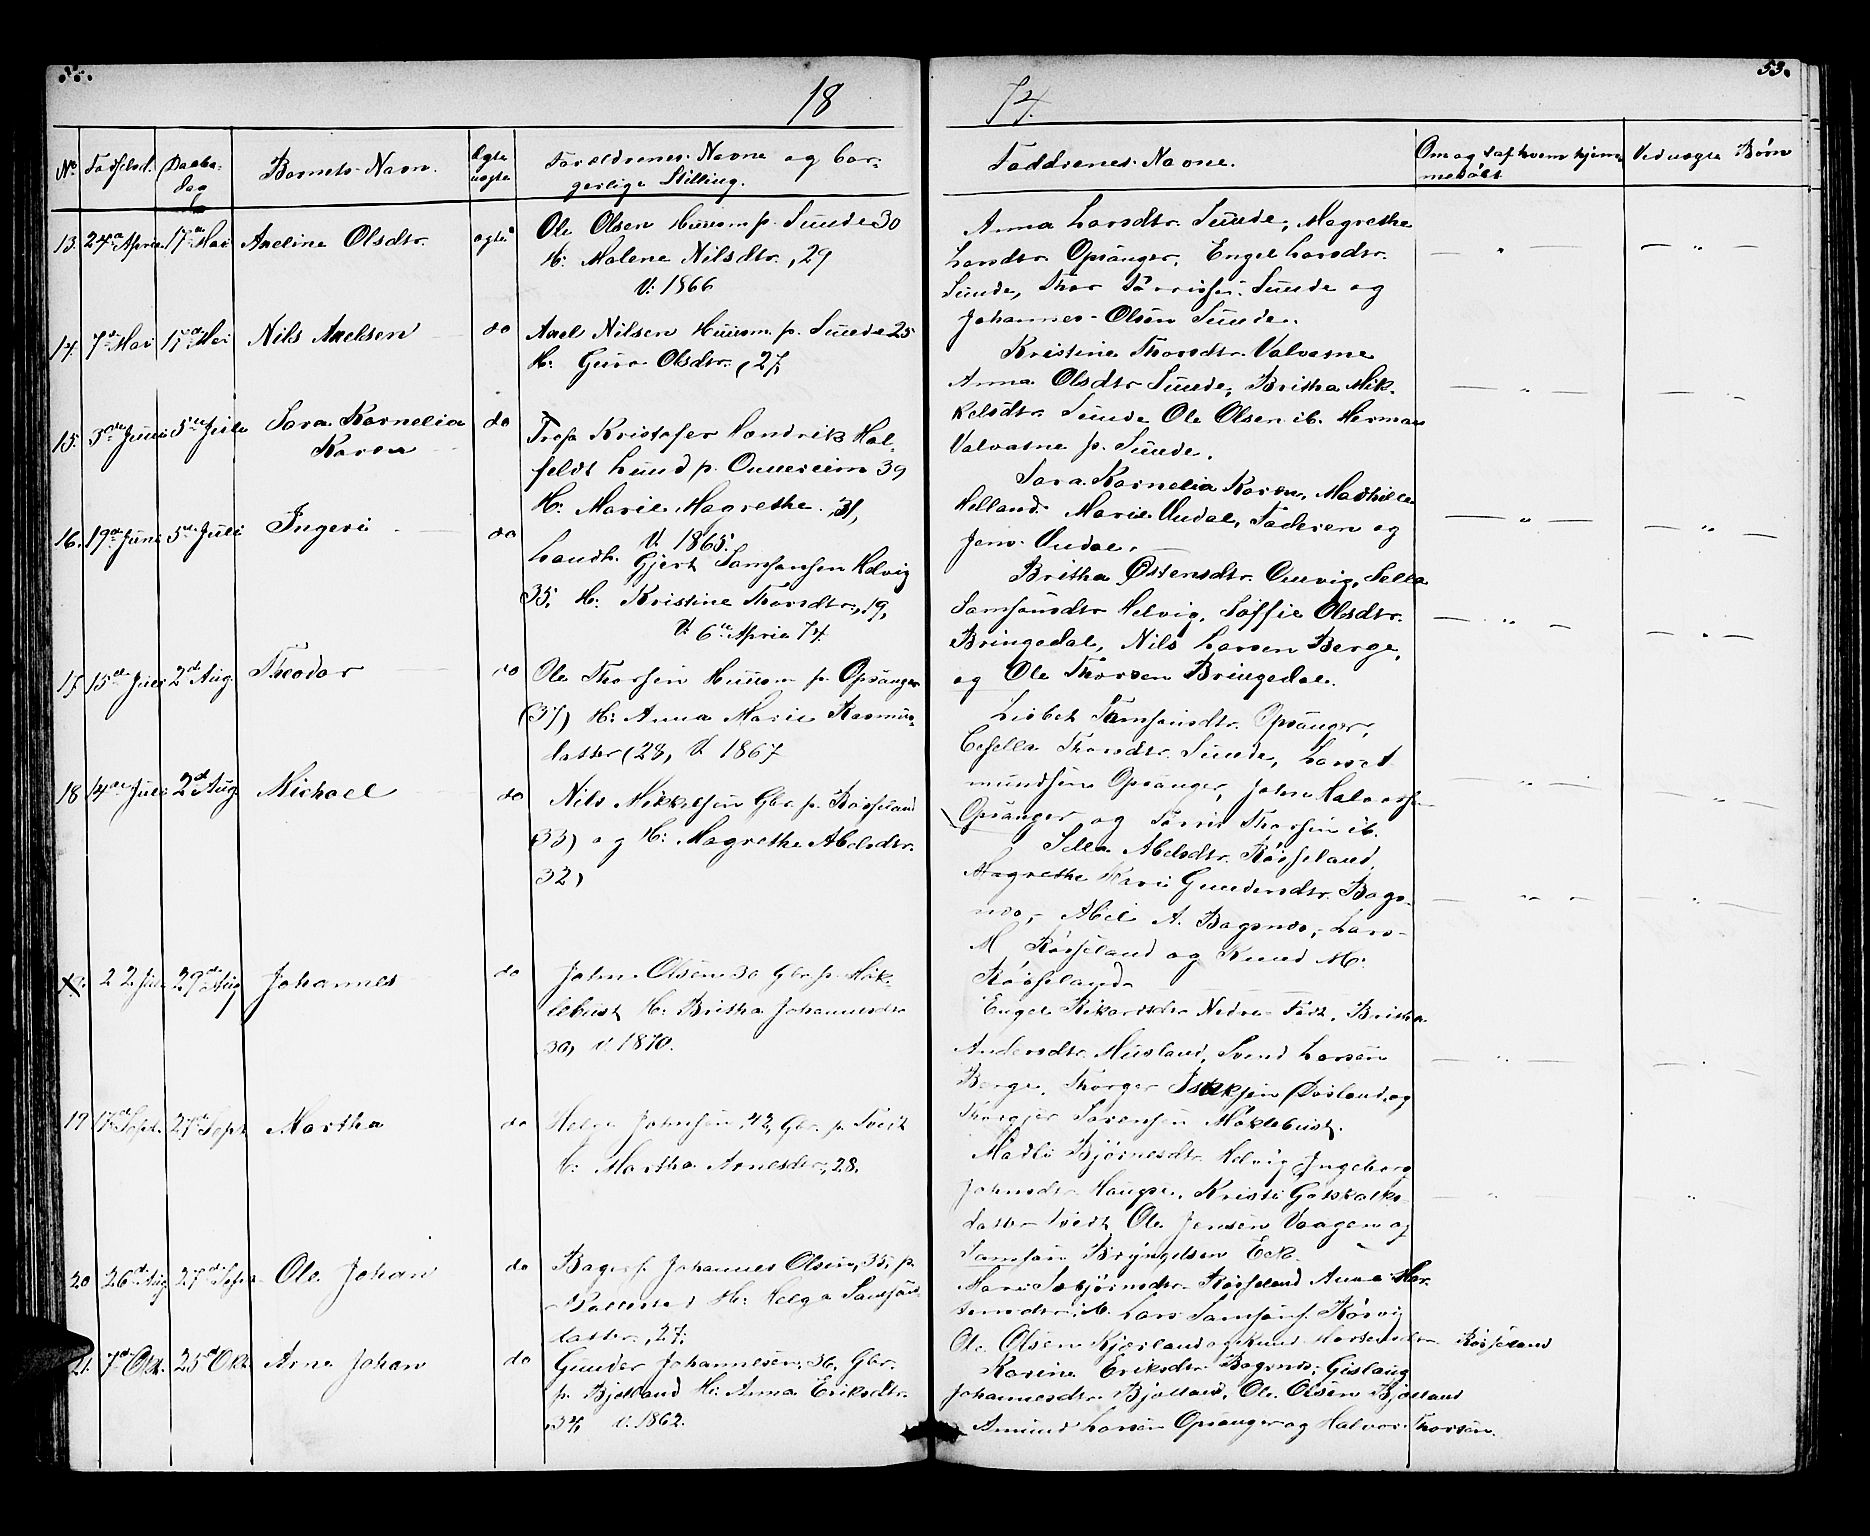 53.
18 74.
No Fødselsd. Daabs-
dag Barnets Navn. Ægte
uægte Forældrenes Navne og bor-
gerlige Stilling. Faddernes Navne. Om og af hvem hjem-
medøbt Ved uægte Børn
13. 24de April 17de Mai Axeline Olsdtr. ægte
Ole Olsen Huusm p. Suude 30
H: Malene Nilsdtr. ,29
V: 1866
Anna Larsdtr. Suude, Magrethe
Larsdtr. Opsanger, Engel Larsdtr.
Suude, Thor Suude og
Johannes Olsen Suude.
14. 7de Mai 17de Mai Nils Axelsen do
Axel Nilsen Huusm. p. Suude 25
H: Guro Olsdtr. (27,
Kristine Thorsdtr. Valvatne
Anna Olsdtr Suude, Britha Mik-
kelsdtr. Suude Ole Olsen ib. Herman
Valvatne p. Suude.
15. 3die Juni 5te Juli Sara Kornelia
Karen do
Kristofer Hendrik Hal-
feldt Lund p. 39
H: Marie Magrethe ,31,
V. 1865.
Sara Kornelia Karen, Mathilde
Helland Marie Undal, Faderen og
Jens Undal.
16. 19de Juni 5te Juli Ingeri do
Landh. Gjert Samsonsen Helvig
35, H: Kristine Thorsdtr., 19,
V: 6te April 74.
Britha Østensdtr. Sella
Samsonsdtr Helvig, Soffie Olsdtr.
Bringedal, Nils Larsen Berge,
og Ole Thorsen Bringedal.
17 15de Juli 2de Aug Theodor do
Ole Thorsen Huusm p. Opsanger
(37) H: Anna Marie Rasmus-
datter (28, V 1867
Lisbet Samsonsdtr. Opsanger,
Thorsdtr. Suude, Lars A
mundsen Opsanger, John Halvorsen
Opsanger og Thorsen ib.
18 14de Juli 2de Aug Michael do
Nils Mikkelsen Gbr. p. Røsseland
(33) og H: Magrethe Abelsdtr.
32)
Sella Abelsdtr. Røsseland,
Magrethe Kari Gundersdtr. Bogs-
nes, Abel A. Bogsnes, Lars
M Røsseland og Knud M:
Røsseland
22 Juli 29de Aug Johannes do
John Olsen 30 Gbr. p. Møk-
lebust H: Britha Johannesdtr
30, V. 1870.
Engel Rikartsdtr Nedre Tvet, Britha
Andersdtr. Huusland, Svend Larsen
Berge, Thorger Isaksen og
Sørensen Møklebust.
19 17de Sept. 27de Sept Martha do
Helge Johnsen ,42, Gbr. p. Tvedt
H: Martha Arnesdtr., 28.
Madli Bjørnesdtr. Helvig Ingeborg
Johnsdtr Haugse, Kristi Gotskalks
datter Tvedt Ole Jensen Vaagen og
Samson Brynjelsen Eek.
20 26de Aug 27de Sept Ole Johan do
Johannes Olsen, 35, p.
H: Helga Samsons-
datter, 27,
Mari Torbjørnsdtr. Røsseland Anna
ib. Lars Samsons. Røsvig
Ole Olsen Kjærland og Knud Røsseland
21. 7de Okt. 25de Okt Arne Johan do
Gunder Johannesen, 36, Gbr.
p. Bjelland H: Anna Eriksdtr.
,34, V. 1862.
Karine Eriksdtr. Bogsnes, Gislaug
Johannesdtr. Bjelland, Ole Olsen Bjelland
Amund Larsen Opsanger og Halvor Thorsen.